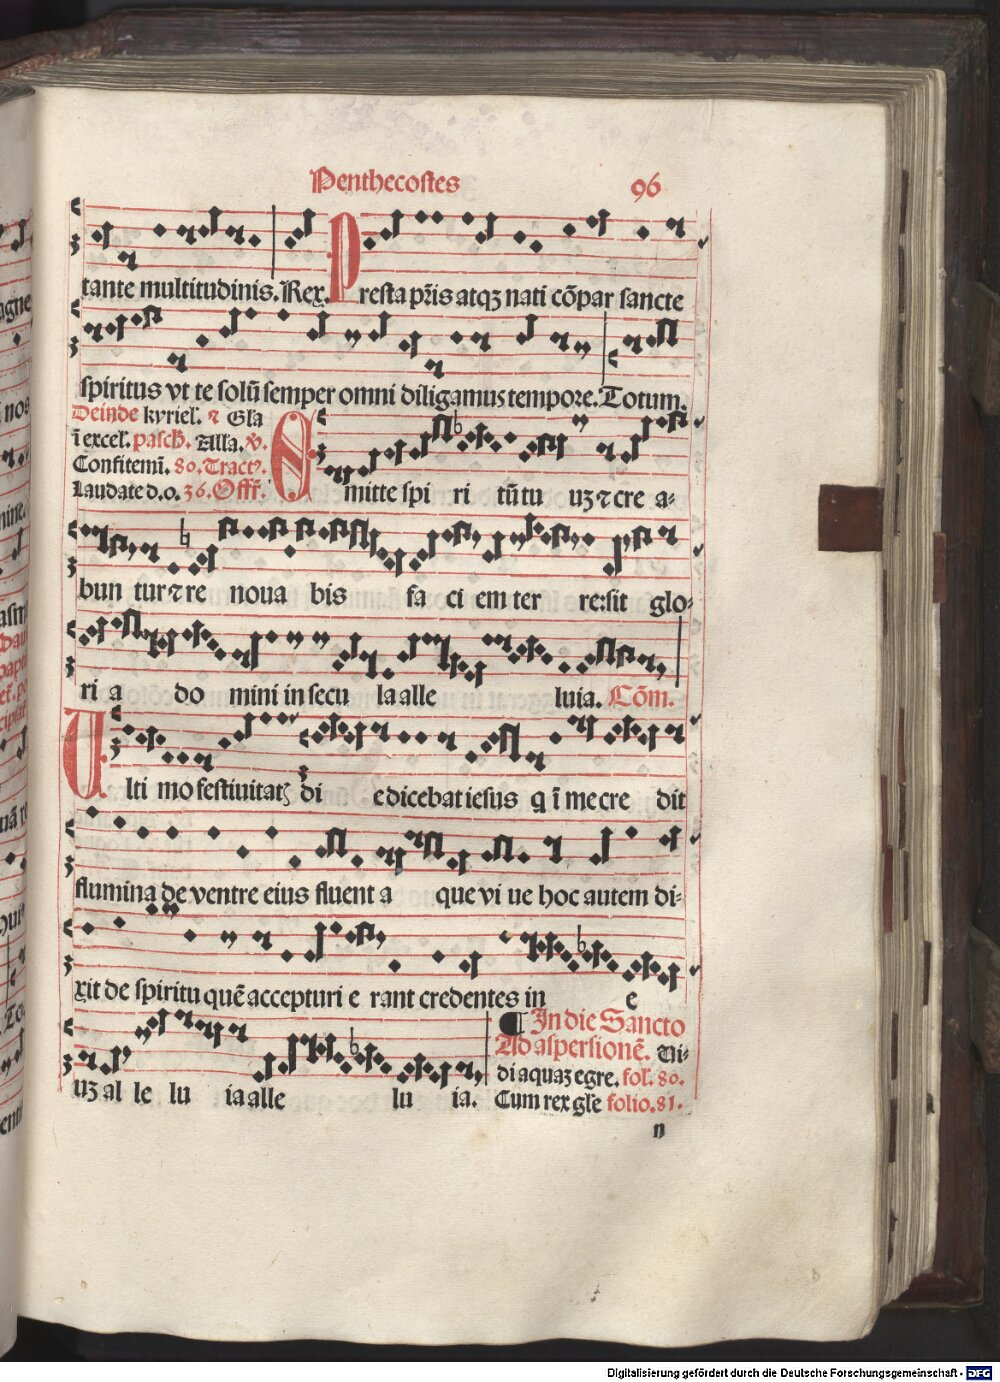 Penthecostes 96
tante multitudinis. Rex. Presta pr̃is atqꝫ nati cõpar sancte
spiritus vt te solũ semper omni diligamus tempore. Totum.
Deinde kyriel'. ⁊ Gl'a
ĩ excel'. pasch̃. Alla. ꝟ.
Confitemĩ. 80. Tractꝰ.
Laudate d.o. 36. Offr̃.
Emitte spi ri tũ tu uꝫ ⁊ cre a-
bun tur ⁊ re noua bis fa ci em ter re: sit glo-
ri a do mini in secu la alle luia. Cõm.
Ulti mo festiuitatꝭ di e dicebat iesus q ĩ me cre dit
flumina de ventre eius fluent a que vi ue hoc autem di-
xit de spiritu quẽ accepturi e rant credentes in e
uꝫ al le lu ia alle lu ia.
¶ In die Sancto
Ad aspersionẽ. Ui-
di aquaꝫ egre. fol'. 80.
Cum rex gl'e folio. 81.
n
Digitalisierung gefördert durch die Deutsche Forschungsgemeinschaft - DFG